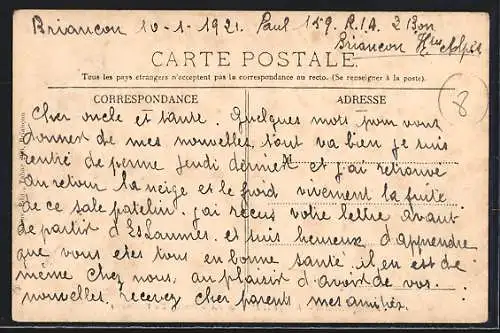 Briançon 10-1-1921. Paul 159. R.I.A. 2 Bon
Briançon Htes Alpes
CARTE POSTALE
Tous les pays étrangers n'acceptent pas la correspondance au recto. (Se renseigner à la poste).
CORRESPONDANCE
ADRESSE
8
Cher oncle et tante. Quelques mots pour vous
donner de mes nouvelles, tout va bien je suis
rentré de perme jeudi dernier et j'ai retrouvé
au retour la neige et le froid vivement la fuite
de ce sale patelin. j'ai reçus votre lettre avant
de partir d'Eslammes. et suis heureux d'apprendre
que vous etes tous en bonne santé. il en est de
même chez nous. au plaisir d'avoir de vos.
nouvelles. recevez cher parents mes amitiés.